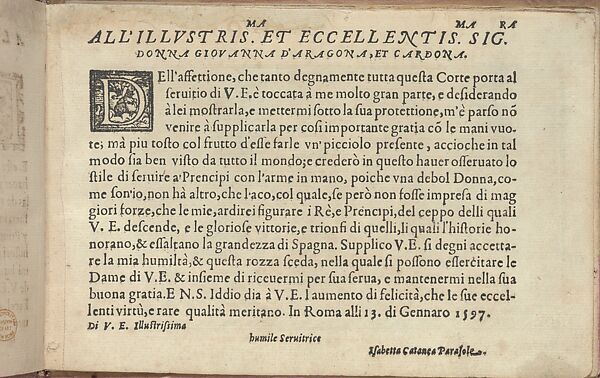 ALL'ILLVSTRIS.MA ET ECCELLENTIS.MA SIG.RA
DONNA GIOVANNA D'ARAGONA, ET CARDONA.
DEll'affettione, che tanto degnamente tutta questa Corte porta al
seruitio di V.E. è toccata à me molto gran parte, e desiderando
à lei mostrarla, e mettermi sotto la sua protettione, m'è parso nō
venire à supplicarla per cosi importante gratia cō le mani vuo-
te; mà piu tosto col frutto d'esse farle vn'picciolo presente, accioche in tal
modo sia ben visto da tutto il mondo; e crederò in questo hauer osseruato lo
stile di seruire a' Prencipi con l'arme in mano, poiche vna debol Donna, co-
me son'io, non hà altro, che l'aco, col quale, se però non fosse impresa di mag
giori forze, che le mie, ardirei figurare i Rè, e Prencipi, del ceppo delli quali
V. E. descende, e le gloriose vittorie, e trionfi di quelli, li quali l'historie ho-
norano, & essaltano la grandezza di Spagna. Supplico V.E. si degni accetta-
re la mia humiltà, & questa rozza sceda, nella quale si possono essercitare le
Dame di V.E. & insieme di riceuermi per sua serua, e mantenermi nella sua
buona gratia. E N.S. Iddio dia à V.E. l'aumento di felicità, che le sue eccel-
lenti virtù, e rare qualità meritano. In Roma alli 13. di Gennaro 1597.
Di V. E. Illustrissima
humile Seruitrice
Isabetta Catanea Parasole.